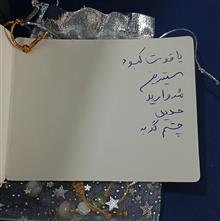 یاقوت کبود
مروارید
حدید
چشم گربه